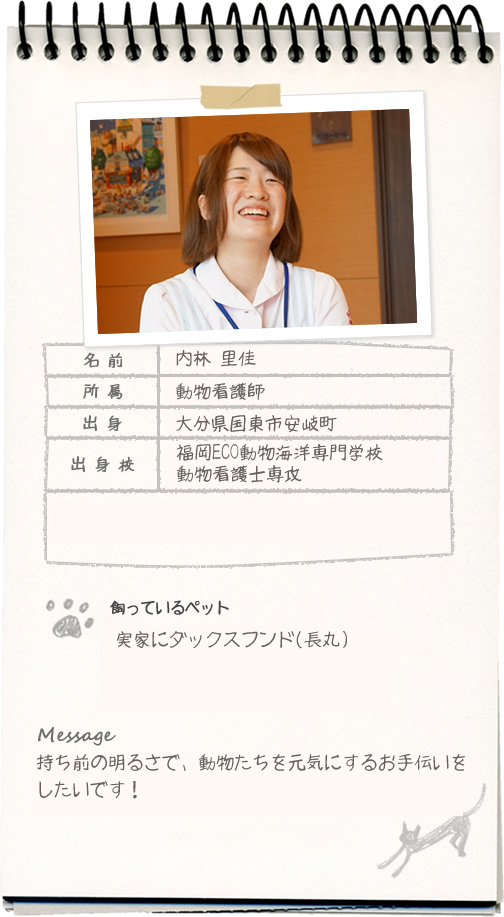 名前 内林 里佳
所属 動物看護師
出身 大分県国東市安岐町
出身校 福岡ECO動物海洋専門学校
動物看護士専攻
飼っているペット
実家にダックスフンド(長丸)
Message
持ち前の明るさで、動物たちを元気にするお手伝いを
したいです！